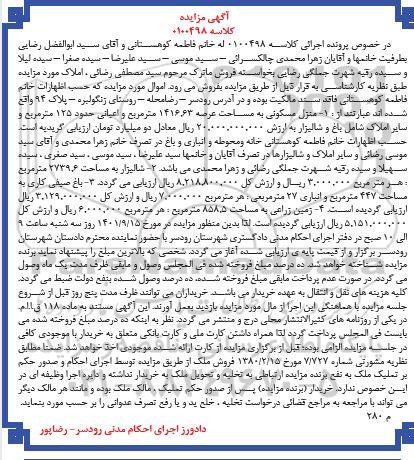 آگهی مزایده
کلاسه ۰۱۰۰۴۹۸
در خصوص پرونده اجرائی کلاسه ۰۱۰۰۴۹۸ له خانم فاطمه کوهستانی و آقای سید ابوالفضل رضایی
بطرفیت خانمها و آقایان زهرا محمدی چالکسرائی – سید موسی – سید علیرضا – سیده صغرا – سیده لیلا
و سیده رقیه شهرت جملگی رضایی بخواسته فروش ماترک مرحوم سید مصطفی رضائی ، املاک مورد مزایده
طبق نظریه کارشناسی به قرار ذیل از طریق مزایده بفروش می رود. اموال مورد مزایده که حسب اظهارات خانم
فاطمه کوهستانی فاقد سند مالکیت بوده و در آدرس رودسر – رضامحله – روستای زنگولبره – پلاک ۹۴ واقع
شده اند عبارتند از : ۱- منزل مسکونی به مساحت عرصه ۱۴۱۶.۶۳ مترمربع و اعیانی حدود ۱۲۵ مترمربع و
سایر املاک شامل باغ و شالیزار به ارزش ۲۰.۰۰۰.۰۰۰.۰۰۰ ریال معادل دو میلیارد تومان ارزیابی گردیده است.
حسب اظهارات خانم فاطمه کوهستانی خانه ومحوطه و انباری و باغ در تصرف خانم زهرا محمدی و آقای سید
موسی رضائی و سایر املاک و شالیزارها در تصرف آقایان و خانمها سید علیرضا ، سید موسی ، سید صفری ، سیده
سهیلا و سیده رقیه شهرت جملگی رضائی و زهرا محمدی می باشد. ۲- شالیزار به مساحت ۲۷۳۹.۶ مترمربع
: هر متر مربع ۳.۰۰۰.۰۰۰ ریال و ارزش کل ۸.۲۱۸.۸۰۰.۰۰۰ ریال ارزیابی می گردد. ۳- باغ صیفی کاری به
مساحت ۴۴۷ مترمربع و انباری ۲۷ مترمربعی : هر مترمربع ۷.۰۰۰.۰۰۰ ریال و ارزش کل ۳.۱۲۹.۰۰۰.۰۰۰ ریال
ارزیابی گردیده است. ۴- زمین زراعی به مساحت ۸۵۸.۵ مترمربع : هر مترمربع ۶.۰۰۰.۰۰۰ ریال و ارزش کل
۵.۱۵۱.۰۰۰.۰۰۰ ریال ارزیابی گردیده است. لذا بدین منظور مزایده در مورخ ۱۴۰۱/۹/۱۵ روز سه شنبه ساعت ۹
الی ۱۰ صبح در دفتر اجرای احکام مدنی دادگستری شهرستان رودسر با حضور نماینده محترم دادستان شهرستان
رودسر برگزار و از قیمت پایه ی ارزیابی شده آغاز می گردد. شخصی که بالاترین مبلغ را پیشنهاد نماید برنده
مزایده شناخته خواهد شد. ده درصد مبلغ فروخته شده فی المجلس وصول و مابقی ظرف مدت یک ماه وصول
می گردد. در صورت عدم پرداخت مابقی مبلغ فروخته شده، ده درصد وصول شده بنفع دولت ضبط می گردد.
کلیه هزینه های نقل و انتقال به عهده خریدار می باشد. خریداران می توانند ظرف مدت پنج روز قبل از شروع
جلسه مزایده با هماهنگی این اجرا از مال مورد مزایده بازدید بعمل آورند. این آگهی مستند به ماده ۱۱۸ ق.ا.م
در یکی از روزنامه های کثیرالانتشار محلی درج و منتشر می گردد. نظر به اینکه ده درصد مبلغ فروخته شده می
بایست فی المجلس پرداخت گردد لذا همراه داشتن کارت ملی و کارت بانکی متعلق به خریدار با موجودی کافی
در جلسه مزایده الزامی بوده؛ قبل از برگزاری مزایده از کارت ارائه شده موجودی اخذ خواهد شد. ضمنا مطابق
نظریه مشورتی شماره ۷/۷۲۷ مورخ ۱۳۸۰/۲/۱۵ فروش ملک از طریق مزایده توسط اجرای احکام و صدور حکم
بر تملیک ملک به نفع برنده مزایده ارتباطی به تخلیه و تحویل ملک به خریدار نداشته و دایره اجرا وظیفه ای در
این خصوص ندارد. خریدار (برنده مزایده) پس از صدور حکم تملیک ، مالک ملک بوده و مانند هر مالک دیگر
می تواند با مراجعه به مراجع قضائی درخواست تخلیه ، خلع ید و یا رفع تصرف عدوانی را بر حسب مورد بنماید.
م ۲۸۰
دادورز اجرای احکام مدنی رودسر– رضاپور